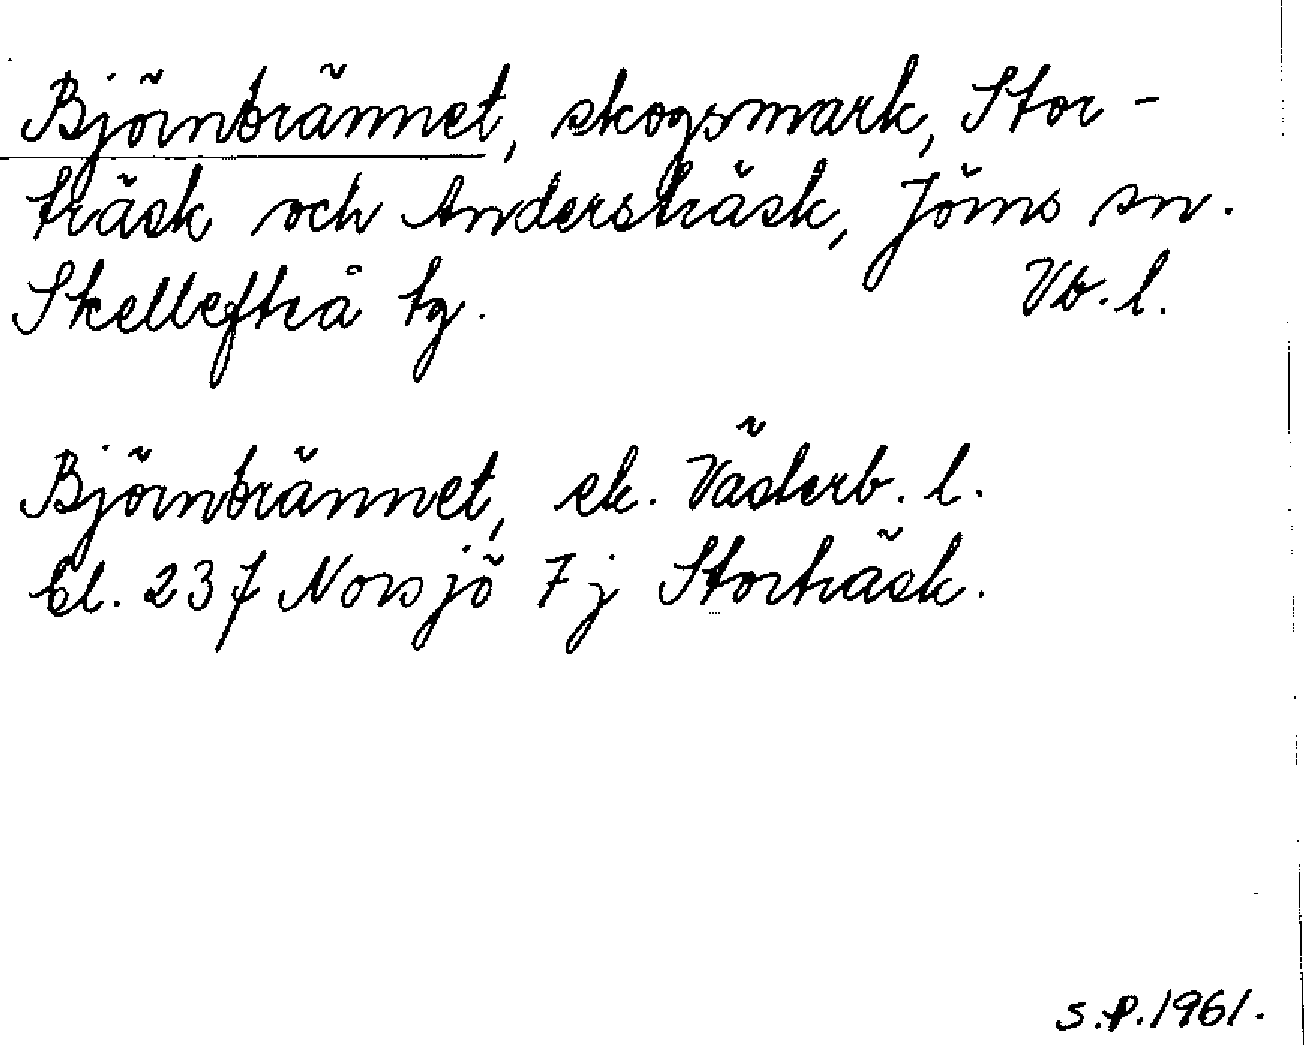 Björnbrännet, skogsmark, Stor-
träsk och Andersträsk, Jörns sn.
Skellefteå tg. Vb. l.
Björnbrännet, ek. Västerb. l.
bl. 237 Norsjö 7j Storträsk.
S.P. 1961.